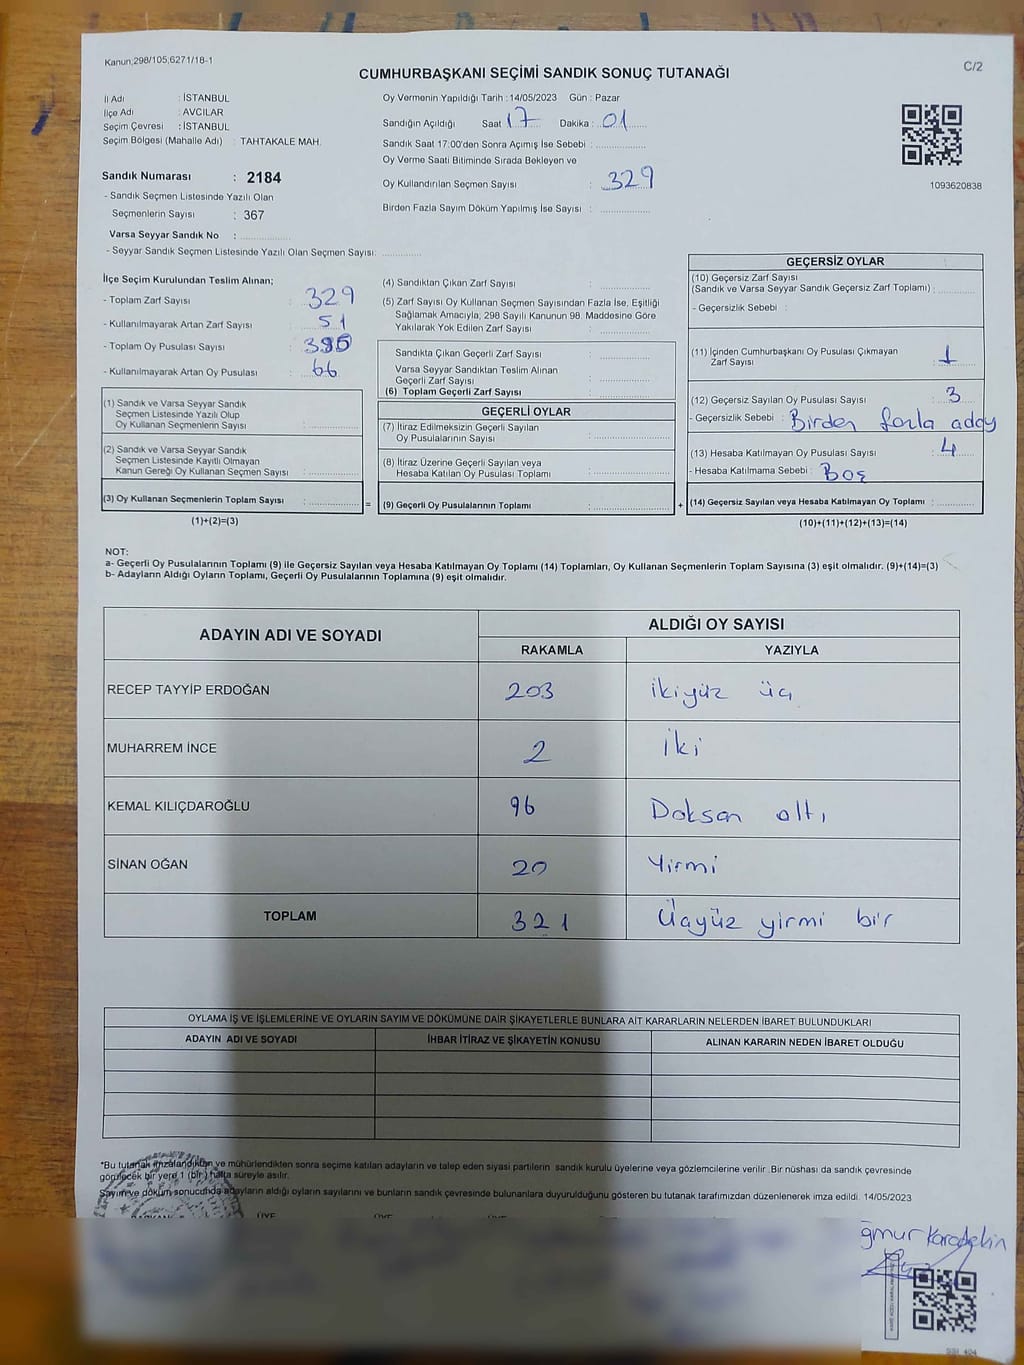 Kanun,298/105,6271/18-1
C/2
CUMHURBAŞKANI SEÇİMİ SANDIK SONUÇ TUTANAĞI
İl Adı : İSTANBUL
İlçe Adı : AVCILAR
Seçim Çevresi : İSTANBUL
Seçim Bölgesi (Mahalle Adı) : TAHTAKALE MAH.
Sandık Numarası : 2184
- Sandık Seçmen Listesinde Yazılı Olan
Seçmenlerin Sayısı : 367
Varsa Seyyar Sandık No :
- Seyyar Sandık Seçmen Listesinde Yazılı Olan Seçmen Sayısı:
Oy Vermenin Yapıldığı Tarih : 14/05/2023 Gün : Pazar
Sandığın Açıldığı Saat 17 Dakika : 01
Sandık Saat 17:00'den Sonra Açımış İse Sebebi :
Oy Verme Saati Bitiminde Sırada Bekleyen ve
Oy Kullandırılan Seçmen Sayısı : 329
Birden Fazla Sayım Döküm Yapılmış İse Sayısı :
1093620838
İlçe Seçim Kurulundan Teslim Alınan;
- Toplam Zarf Sayısı : 329
- Kullanılmayarak Artan Zarf Sayısı : 51
- Toplam Oy Pusulası Sayısı : 395
- Kullanılmayarak Artan Oy Pusulası : 66
(1) Sandık ve Varsa Seyyar Sandık
Seçmen Listesinde Yazılı Olup
Oy Kullanan Seçmenlerin Sayısı :
(2) Sandık ve Varsa Seyyar Sandık
Seçmen Listesinde Kayıtlı Olmayan
Kanun Gereği Oy Kullanan Seçmen Sayısı :
(3) Oy Kullanan Seçmenlerin Toplam Sayısı :
(1)+(2)=(3)
=
(4) Sandıktan Çıkan Zarf Sayısı :
(5) Zarf Sayısı Oy Kullanan Seçmen Sayısından Fazla İse, Eşitliği
Sağlamak Amacıyla, 298 Sayılı Kanunun 98. Maddesine Göre
Yakılarak Yok Edilen Zarf Sayısı :
Sandıkta Çıkan Geçerli Zarf Sayısı :
Varsa Seyyar Sandıktan Teslim Alınan
Geçerli Zarf Sayısı :
(6) Toplam Geçerli Zarf Sayısı :
GEÇERLİ OYLAR
(7) İtiraz Edilmeksizin Geçerli Sayılan
Oy Pusulalarının Sayısı :
(8) İtiraz Üzerine Geçerli Sayılan veya
Hesaba Katılan Oy Pusulası Toplamı :
(9) Geçerli Oy Pusulalarının Toplamı :
+
GEÇERSİZ OYLAR
(10) Geçersiz Zarf Sayısı
(Sandık ve Varsa Seyyar Sandık Geçersiz Zarf Toplamı) :
- Geçersizlik Sebebi :
(11) İçinden Cumhurbaşkanı Oy Pusulası Çıkmayan
Zarf Sayısı : 1
(12) Geçersiz Sayılan Oy Pusulası Sayısı : 3
- Geçersizlik Sebebi : Birden fazla aday
(13) Hesaba Katılmayan Oy Pusulası Sayısı : 4
- Hesaba Katılmama Sebebi : Boş
(14) Geçersiz Sayılan veya Hesaba Katılmayan Oy Toplamı :
(10)+(11)+(12)+(13)=(14)
NOT:
a- Geçerli Oy Pusulalarının Toplamı (9) ile Geçersiz Sayılan veya Hesaba Katılmayan Oy Toplamı (14) Toplamları, Oy Kullanan Seçmenlerin Toplam Sayısına (3) eşit olmalıdır. (9)+(14)=(3)
b- Adayların Aldığı Oyların Toplamı, Geçerli Oy Pusulalarının Toplamına (9) eşit olmalıdır.
ADAYIN ADI VE SOYADI ALDIĞI OY SAYISI
RAKAMLA YAZIYLA
RECEP TAYYİP ERDOĞAN 203 İkiyüz üç
MUHARREM İNCE 2 İki
KEMAL KILIÇDAROĞLU 96 Doksan altı
SİNAN OĞAN 20 Yirmi
TOPLAM 321 Üçyüz yirmi bir
OYLAMA İŞ VE İŞLEMLERİNE VE OYLARIN SAYIM VE DÖKÜMÜNE DAİR ŞİKAYETLERLE BUNLARA AİT KARARLARIN NELERDEN İBARET BULUNDUKLARI
ADAYIN ADI VE SOYADI İHBAR İTİRAZ VE ŞİKAYETİN KONUSU ALINAN KARARIN NEDEN İBARET OLDUĞU
*Bu tutanak imzalandıktan ve mühürlendikten sonra seçime katılan adayların ve talep eden siyasi partilerin sandık kurulu üyelerine veya gözlemcilerine verilir. Bir nüshası da sandık çevresinde
görülecek bir yere 1 (bir) hafta süreyle asılır.
Sayım ve döküm sonucunda adayların aldığı oyların sayılarını ve bunların sandık çevresinde bulunanlara duyurulduğunu gösteren bu tutanak tarafımızdan düzenlenerek imza edildi. 14/05/2023
ÜYE ÜYE ÜYE
ğmur Karadekin